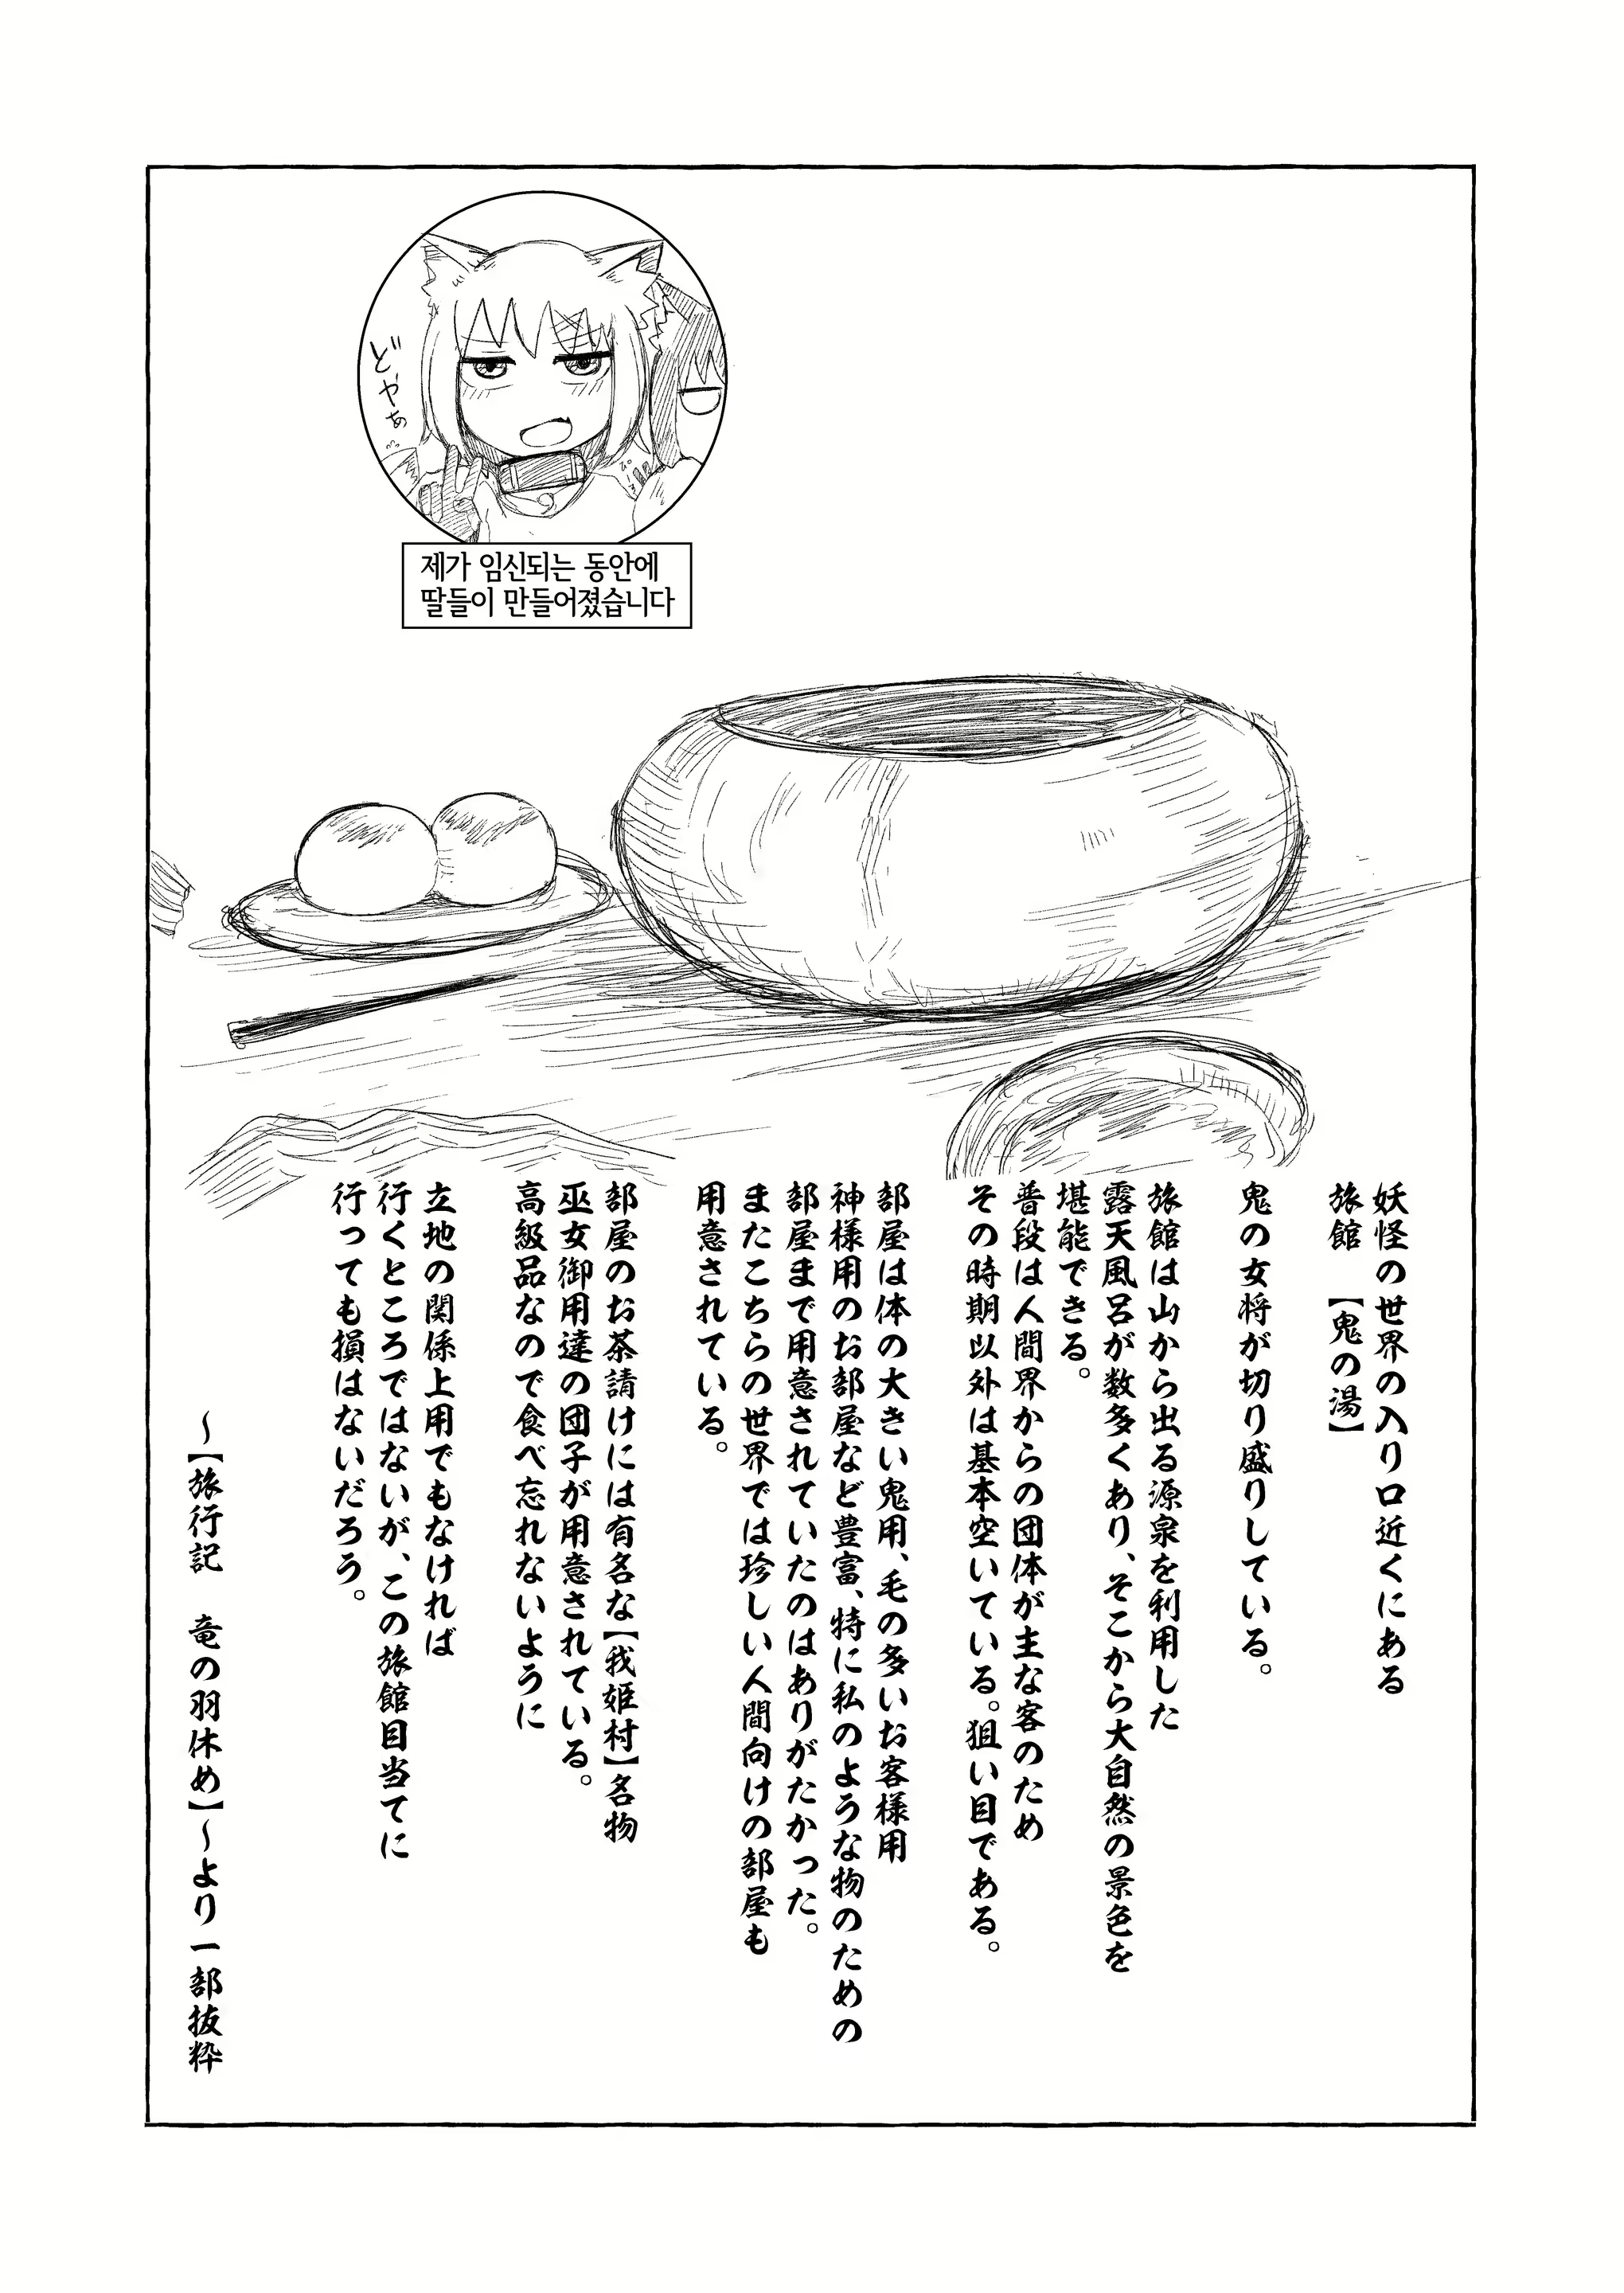 どやぁ
제가 임신되는 동안에
딸들이 만들어졌습니다
妖怪の世界の入り口近くにある
旅館　【鬼の湯】
鬼の女将が切り盛りしている。
旅館は山から出る源泉を利用した
露天風呂が数多くあり、そこから大自然の景色を
堪能できる。
普段は人間界からの団体が主な客のため
その時期以外は基本空いている。狙い目である。
部屋は体の大きい鬼用、毛の多いお客様用
神様用のお部屋など豊富、特に私のような物のための
部屋まで用意されていたのはありがたかった。
またこちらの世界では珍しい人間向けの部屋も
用意されている。
部屋のお茶請けには有名な【我姫村】名物
巫女御用達の団子が用意されている。
高級品なので食べ忘れないように
立地の関係上用でもなければ
行くところではないが、この旅館目当てに
行っても損はないだろう。
～【旅行記　竜の羽休め】～より一部抜粋